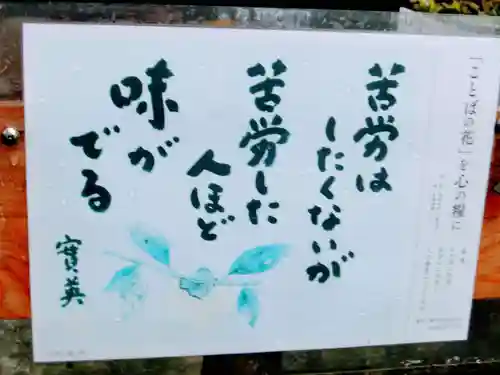 「ことばの花」を心の糧に
苦労は
したくないが
苦労した
人ほど
味が
でる
實英